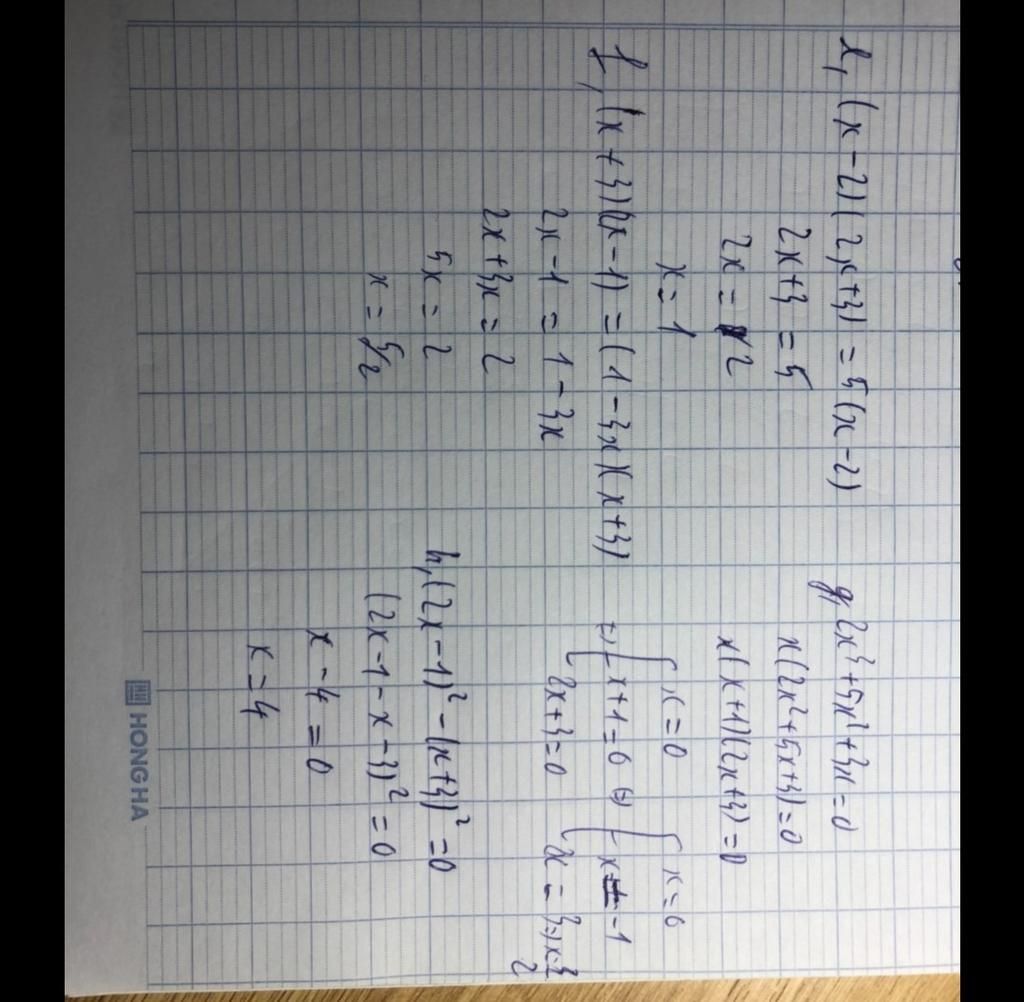 l, (x-2)(2x+3) = 5(x-2)
2x+3 = 5
2x = 2
x = 1
f, (x+3)(2x-1) = (1-3x)(x+3)
2x-1 = 1-3x
2x+3x = 2
5x = 2
x = 5/2
g, 2x³+5x²+3x=0
x(2x²+5x+3)=0
x(x+1)(2x+3)=0
x=0 x=0
(=) x+1=0 (=) x=-1
2x+3=0 x = 3=)x=3/2
h, (2x-1)²-(x+3)²=0
(2x-1-x-3)²=0
x-4=0
x=4
HONG HA